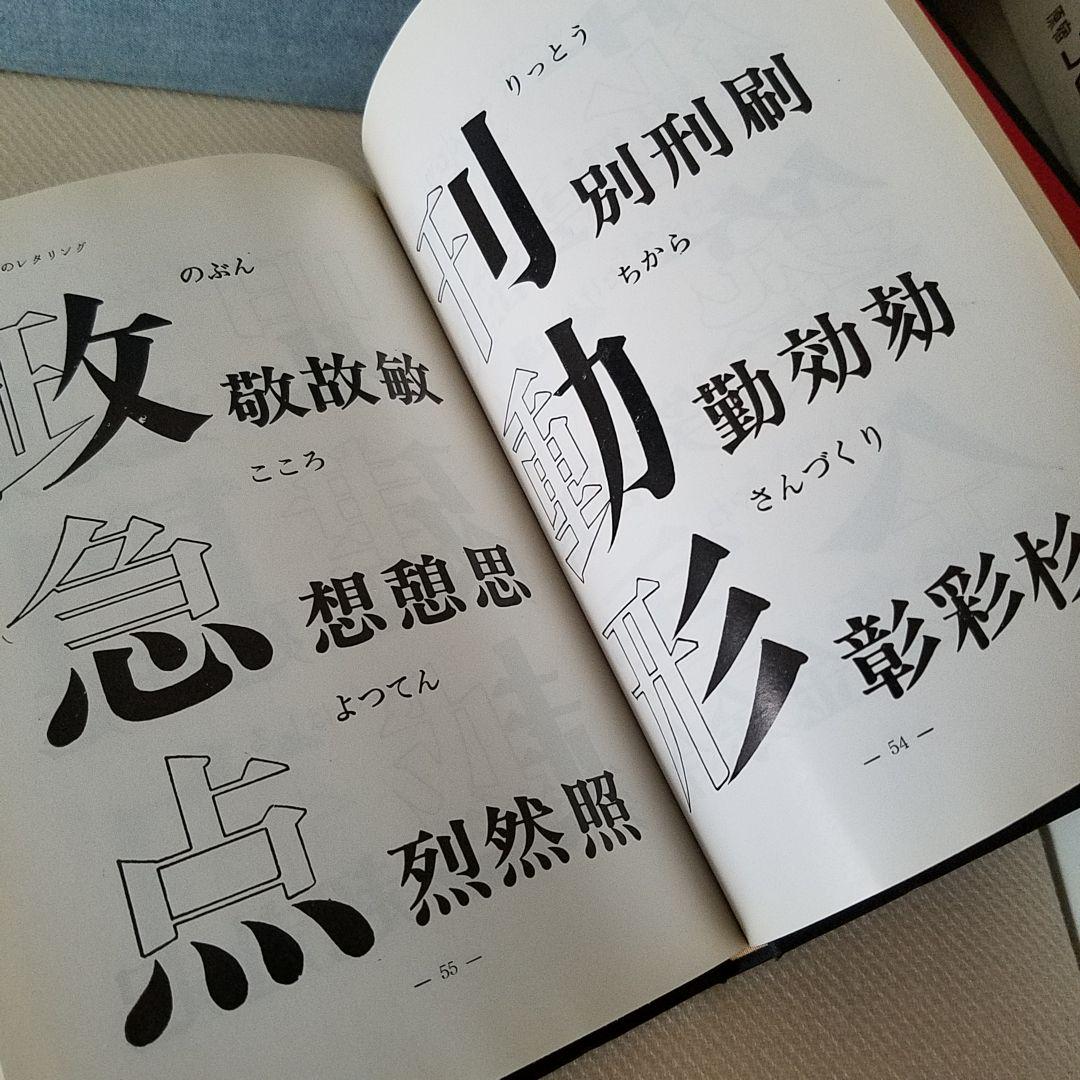 りっとう
刊 別刑刷
ちから
動 勤効劾
さんづくり
形 彰彩杉
— 54 —
のレタリング
のぶん
政 敬故敏
こころ
急 想憩思
よつてん
点 烈然照
— 55 —